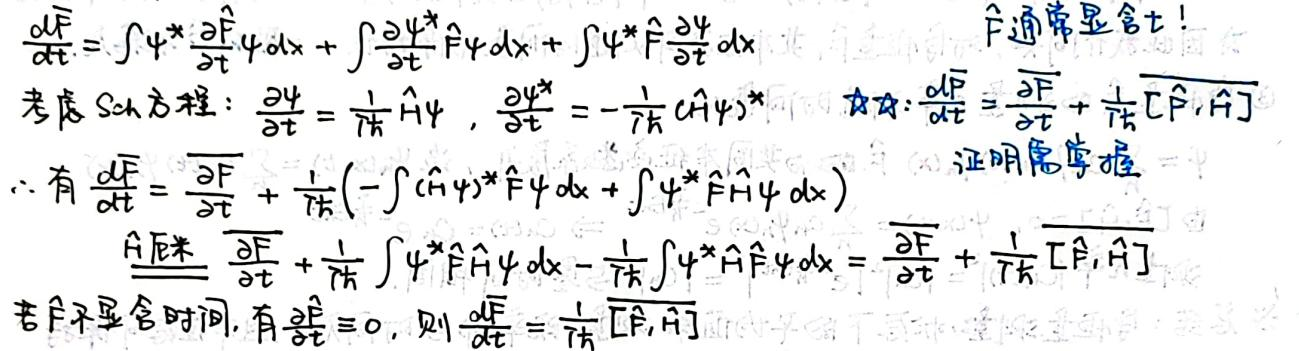 dF̅/dt = ∫ψ* ∂F̂/∂t ψ dx + ∫ ∂ψ*/∂t F̂ψ dx + ∫ψ* F̂ ∂ψ/∂t dx
F̂通常显含t!
考虑 Sch 方程: ∂ψ/∂t = 1/iħ Ĥψ , ∂ψ*/∂t = -1/iħ (Ĥψ)*
☆☆: dF̅/dt = \overline{∂F/∂t} + 1/iħ \overline{[F̂,Ĥ]}
证明需掌握
∴ 有 dF̅/dt = \overline{∂F/∂t} + 1/iħ (-∫(Ĥψ)* F̂ψ dx + ∫ψ* F̂Ĥψ dx)
Ĥ厄米 == \overline{∂F/∂t} + 1/iħ ∫ψ*F̂Ĥψ dx - 1/iħ ∫ψ*ĤF̂ψ dx = \overline{∂F/∂t} + 1/iħ \overline{[F̂,Ĥ]}
若F̂不显含时间, 有 ∂F̂/∂t ≡ 0, 则 dF̅/dt = 1/iħ \overline{[F̂,Ĥ]}